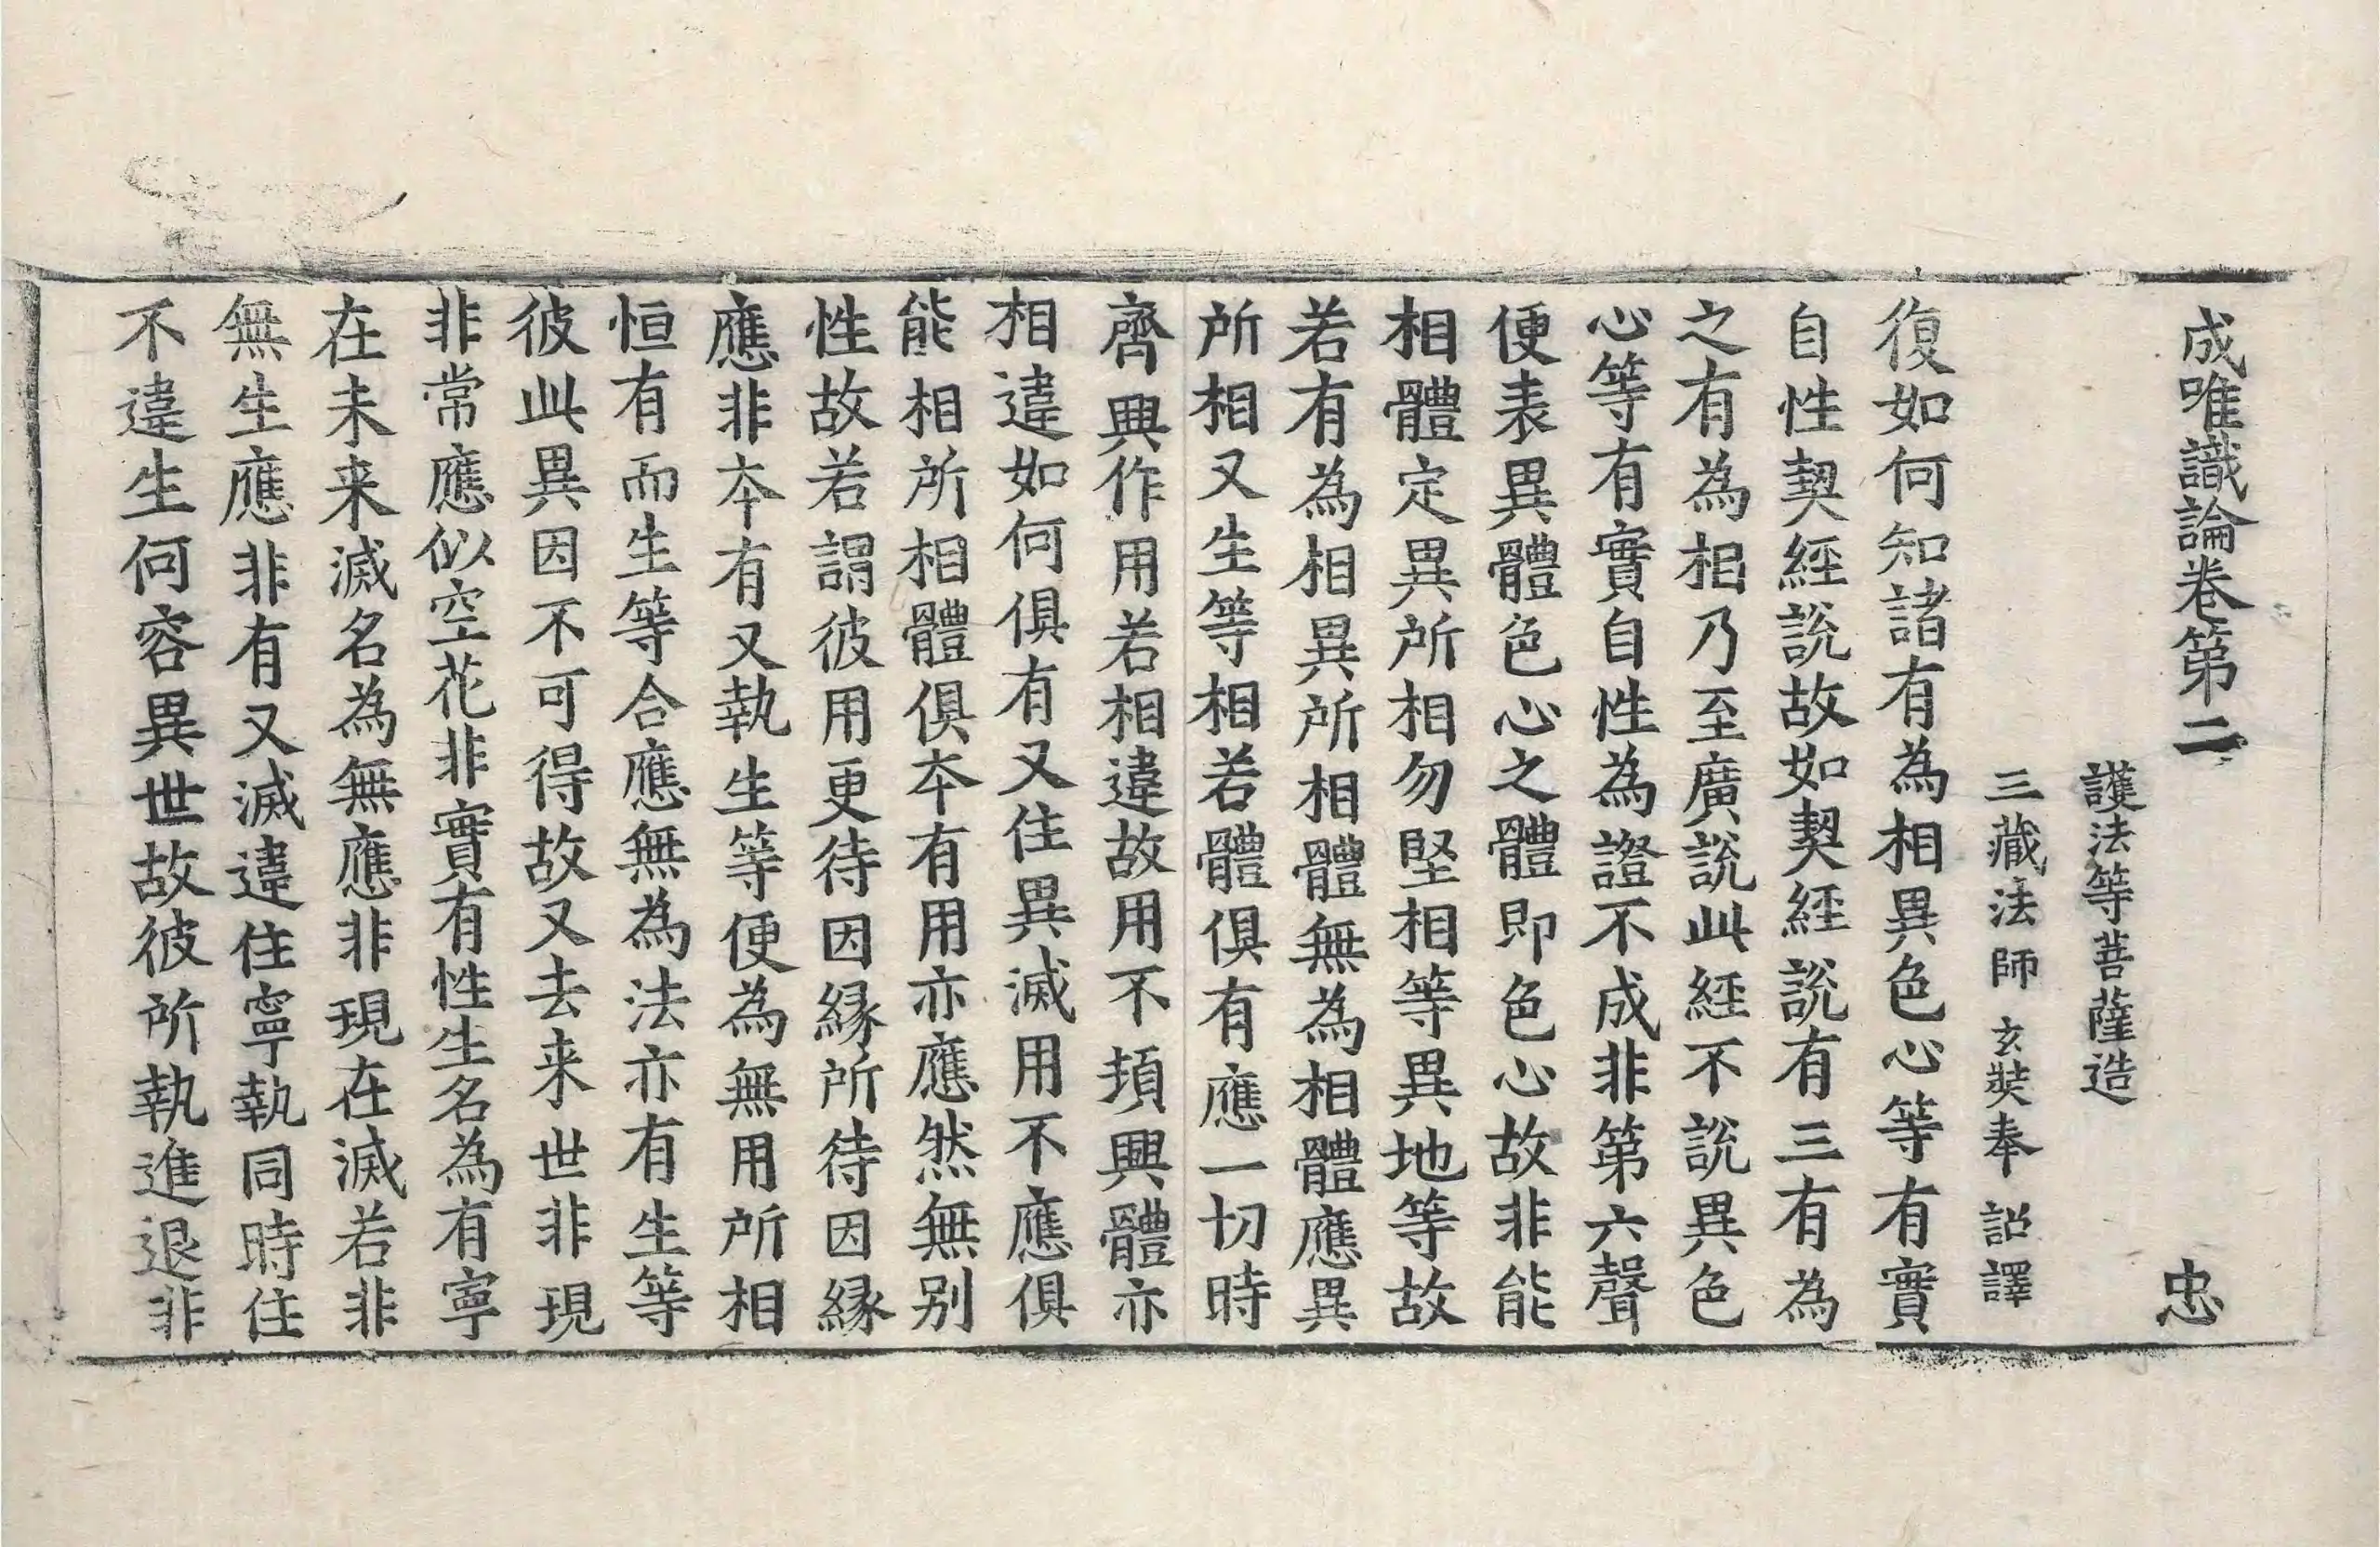 成唯識論卷第二 忠
護法等菩薩造
三藏法師 玄奘奉 詔譯
復如何知諸有為相異色心等有實
自性契經說故如契經說有三有為
之有為相乃至廣說此經不說異色
心等有實自性為證不成非第六聲
便表異體色心之體即色心故非能
相體定異所相勿堅相等異地等故
若有為相異所相體無為相體應異
所相又生等相若體俱有應一切時
齊興作用若相違故用不頓興體亦
相違如何俱有又住異滅用不應俱
能相所相體俱夲有用亦應然無別
性故若謂彼用更待因緣所待因緣
應非夲有又執生等便為無用所相
恒有而生等合應無為法亦有生等
彼此異因不可得故又去来世非現
非常應似空花非實有性生名為有寧
在未来滅名為無應非現在滅若非
無生應非有又滅違住寧執同時住
不違生何容異世故彼所執進退非